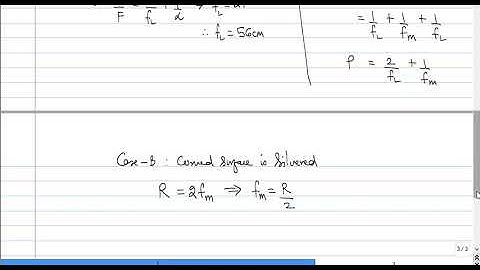 1/F = 1/f_L + 1/α ⇒ f_L =
∴ f_L = 56cm
= 1/f_L + 1/f_m + 1/f_L
P = 2/f_L + 1/f_m
Case-3 : Convex surface is Silvered
R = 2f_m ⇒ f_m = R/2
3 / 3